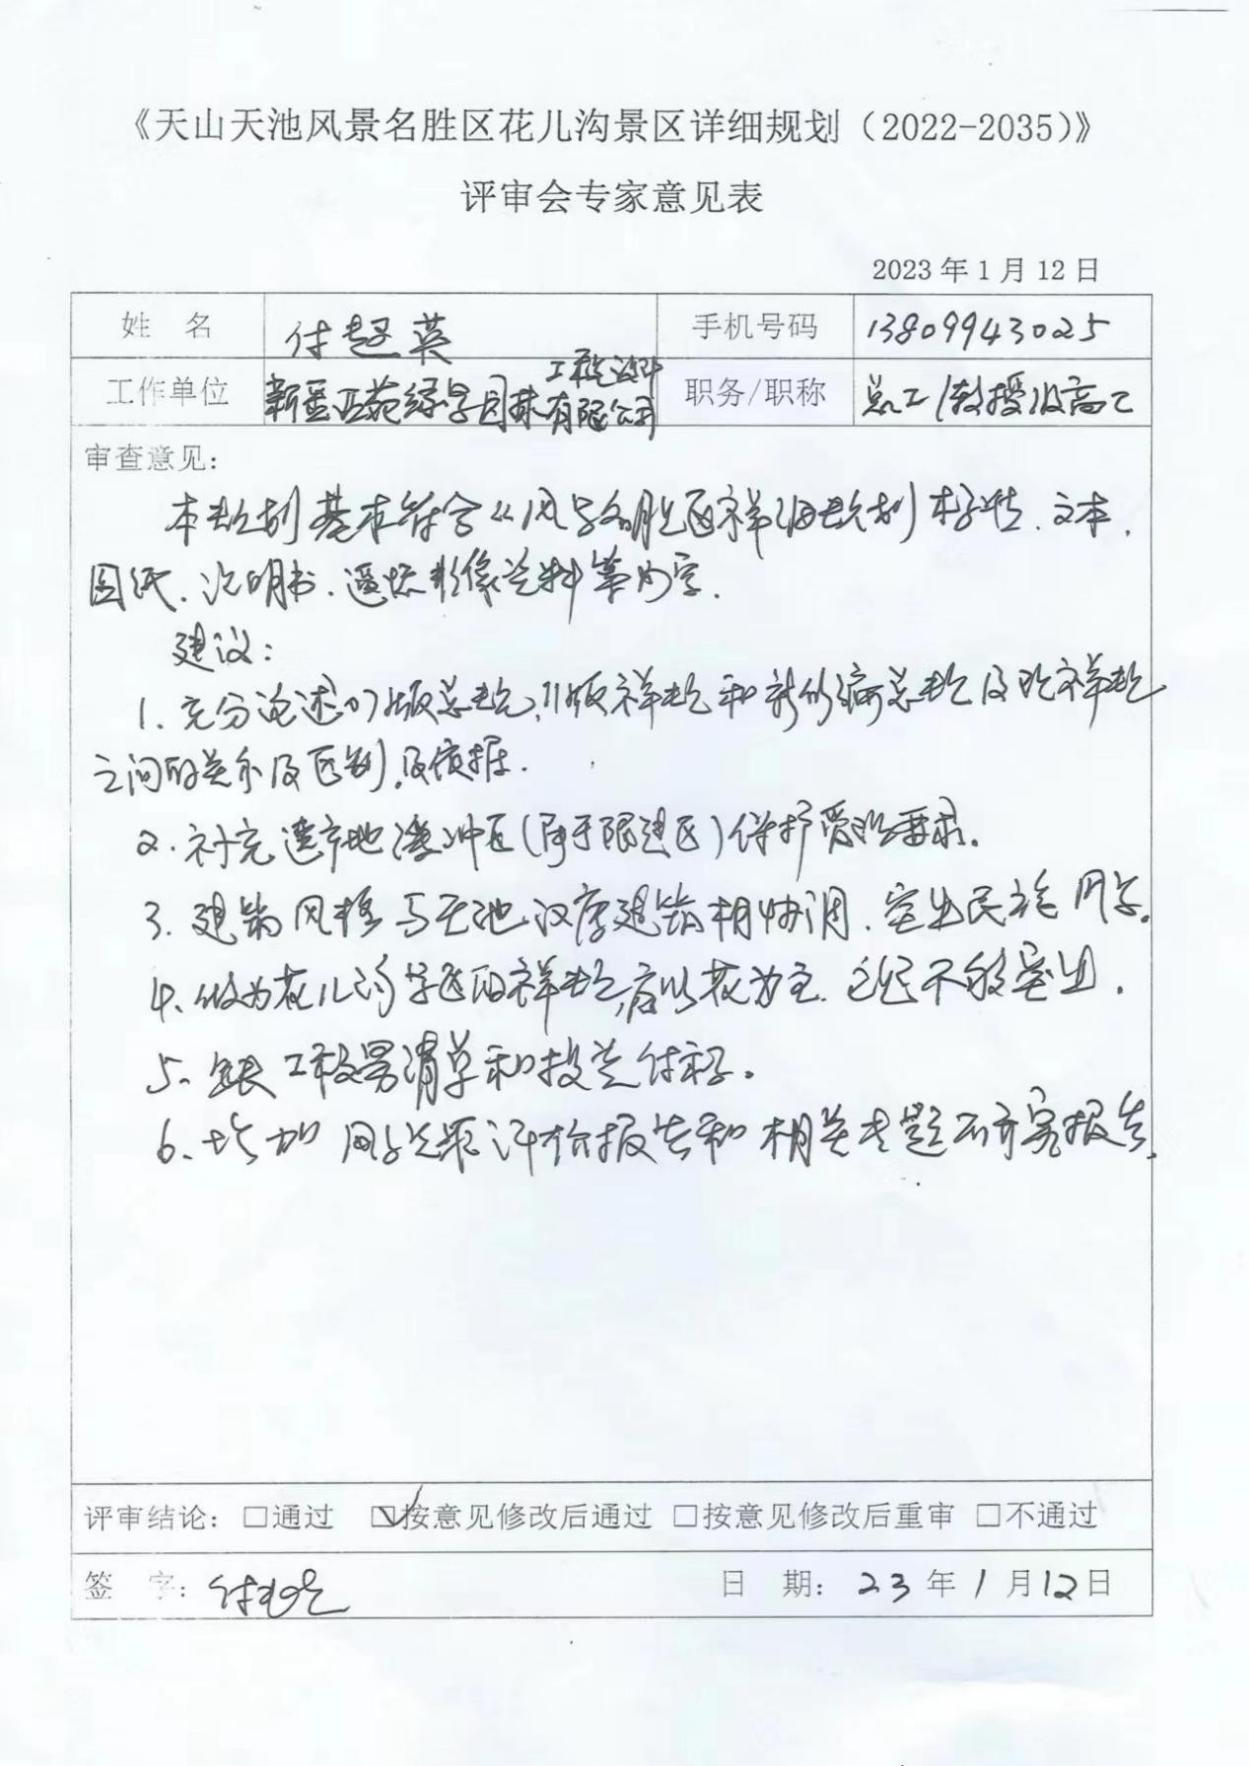 《天山天池风景名胜区花儿沟景区详细规划（2022-2035）》
评审会专家意见表
2023年1月12日
姓 名 付超英 手机号码 13809943025
工程设计
工作单位 新疆 园林有限公司 职务/职称 总工/教授级高工
审查意见：
本规划基本符合《风景名胜区详细规划标准》、文本、
图纸、说明书、遥感影像资料等内容.
建议：
1. 充分论述07版总规、11版详规和新修编总规及此详规
之间的关系及区别,及依据.
2. 补充遗产地缓冲区(属于限建区)保护管理要求.
3. 建筑风格与天池汉唐建筑相协调、突出民族风景.
4、做为花儿沟景区的详规,应以花为主.这还不能突出.
5、缺工程量清单和投资估算。
6、增加风景资源评价报告和相关专题研究报告.
评审结论：□通过 ☑按意见修改后通过 □按意见修改后重审 □不通过
签 字：付超英 日 期：23年1月12日